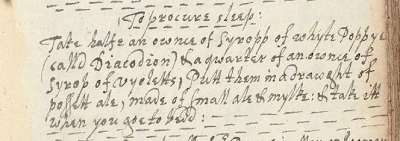 To procure sleep:
Take halfe an ownce of Syropp of whyte Poppye
(calld Diacodion) & a quarter of an ownce of
Syrop of vyoletts, Putt them in a drawght of
possett ale, made of small ale & mylke: & take itt
when you goe to bedd: